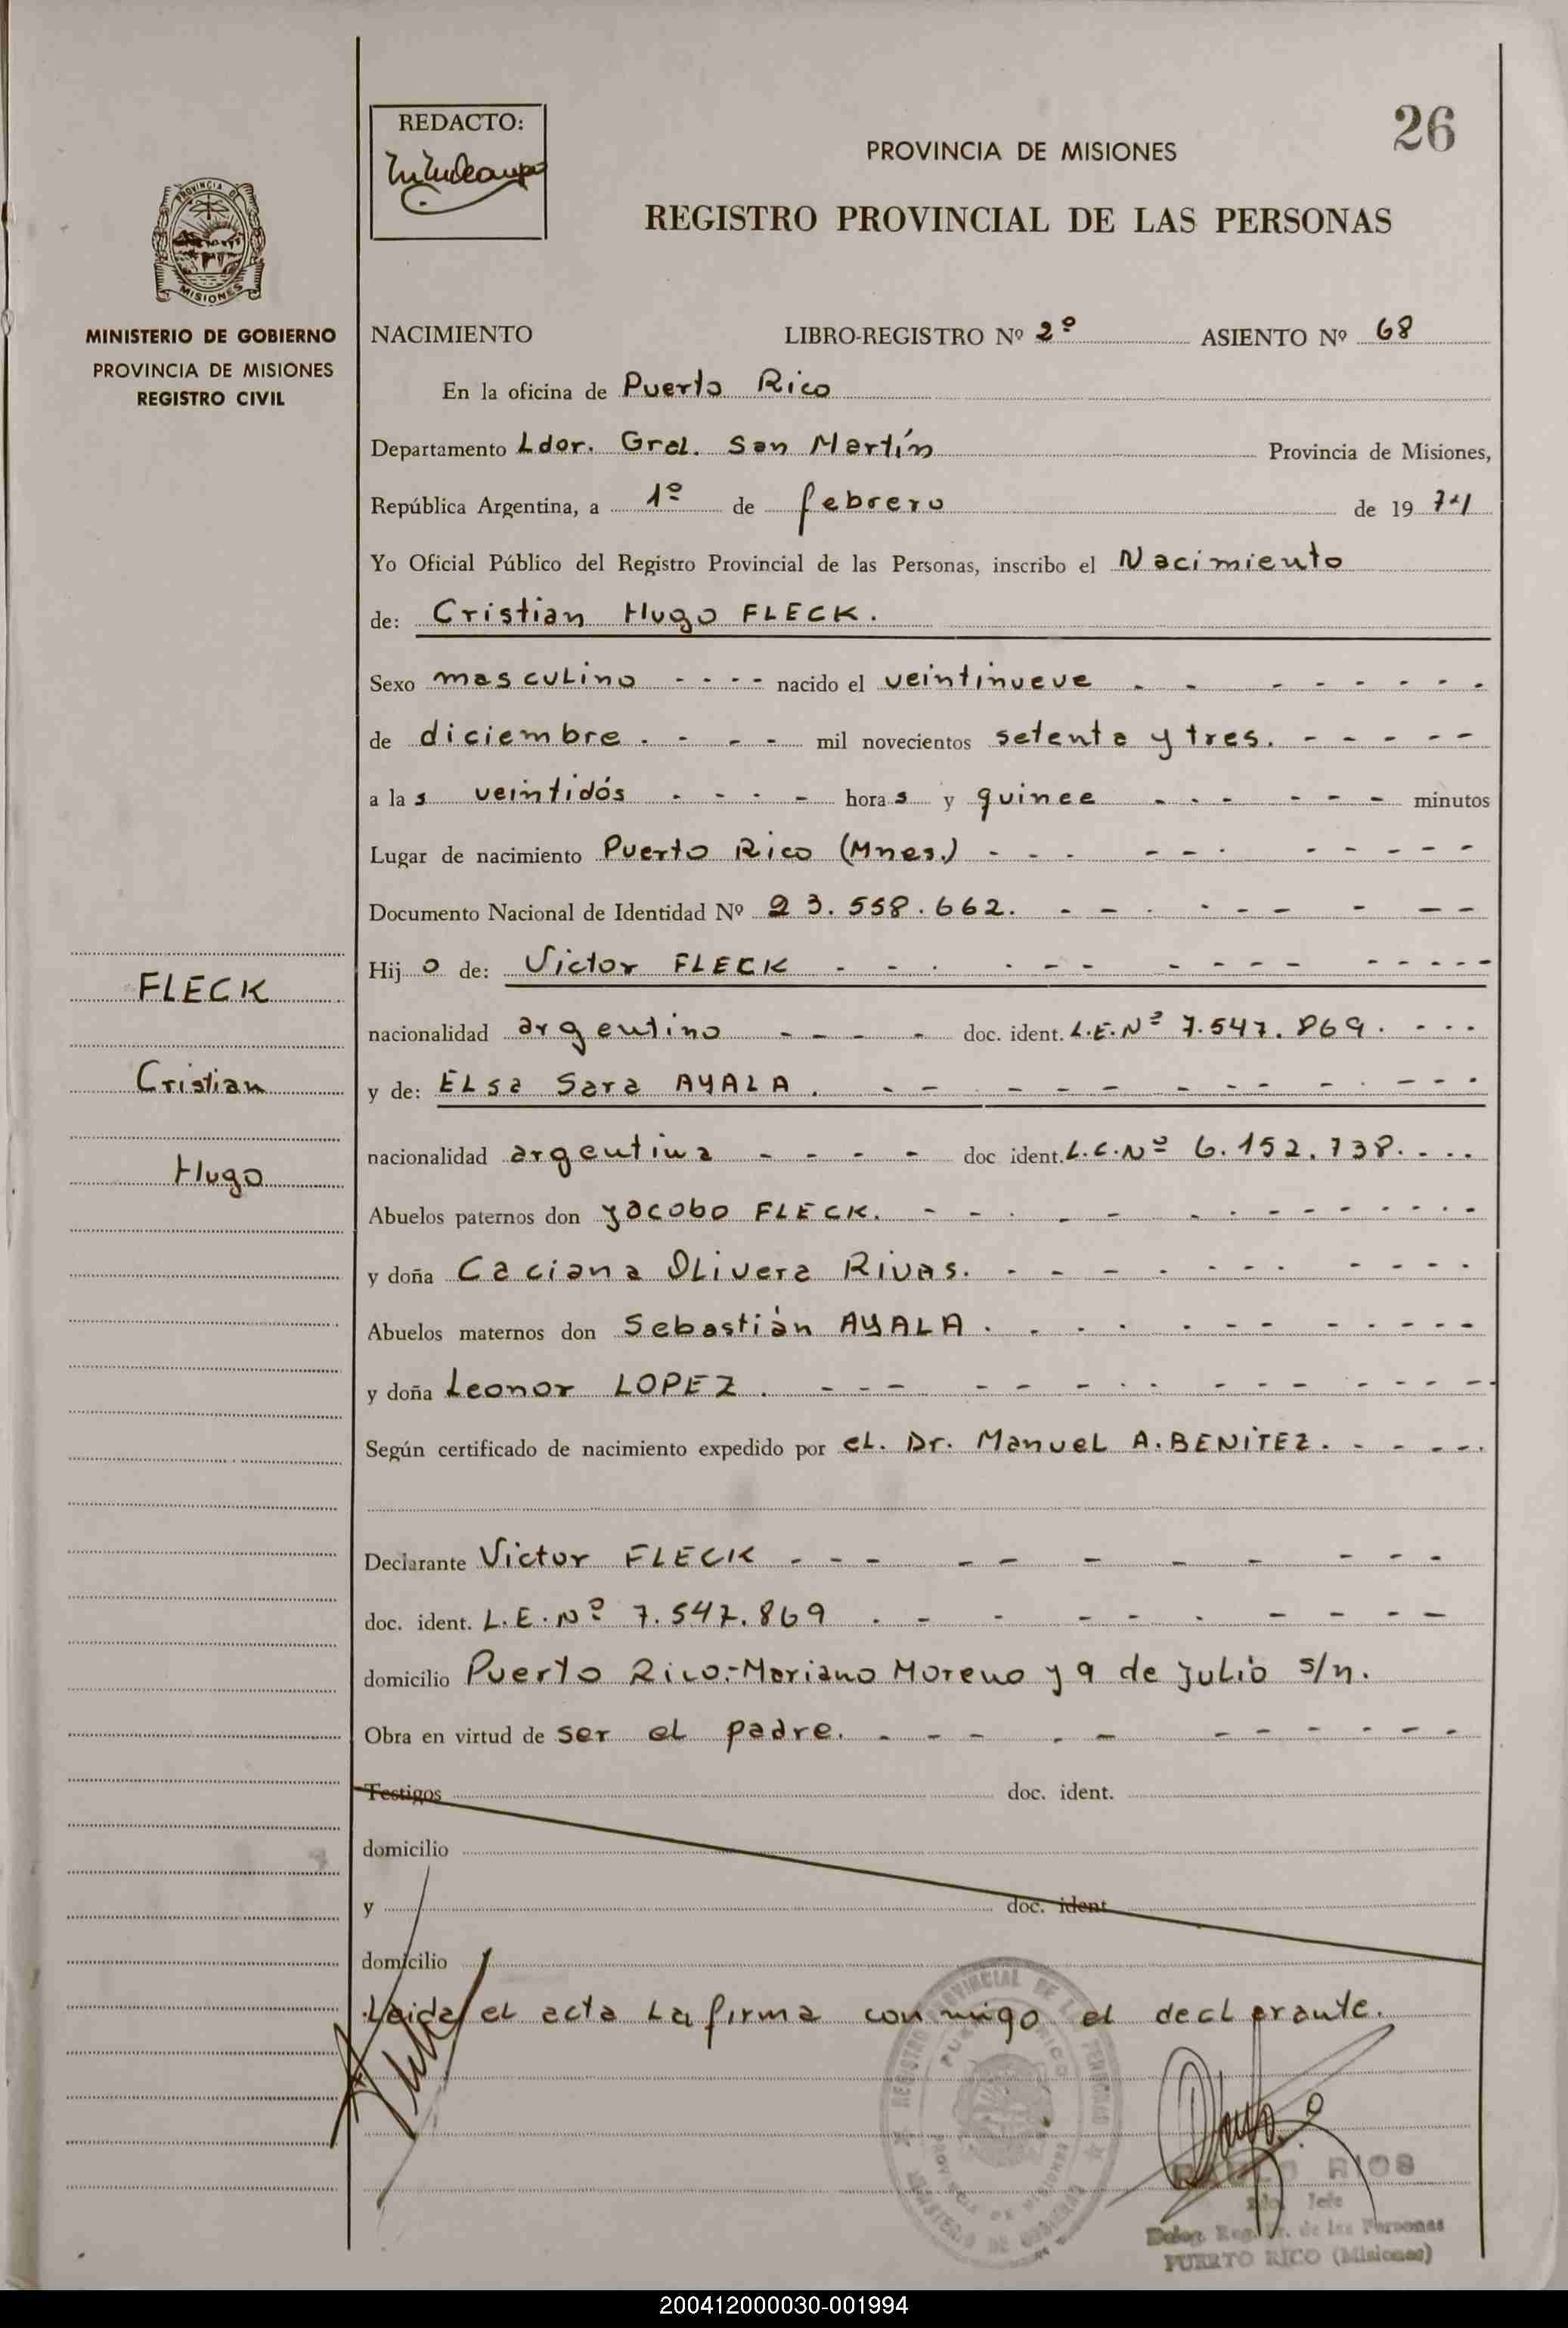 26
REDACTO:
PROVINCIA DE MISIONES
REGISTRO PROVINCIAL DE LAS PERSONAS
PROVINCIA D
MISIONES
MINISTERIO DE GOBIERNO
PROVINCIA DE MISIONES
REGISTRO CIVIL
NACIMIENTO LIBRO-REGISTRO Nº 2º ASIENTO Nº 68
En la oficina de Puerto Rico
Departamento Ldor. Gral. San Martín Provincia de Misiones,
República Argentina, a 1º de febrero de 1974
Yo Oficial Público del Registro Provincial de las Personas, inscribo el Nacimiento
de: Cristian Hugo FLECK.
Sexo masculino - - - - nacido el veintinueve - - - - - - - -
de diciembre. - - - - mil novecientos setenta y tres. - - - - - -
a las veintidós - - - - horas y quince - - - - - - - minutos
Lugar de nacimiento Puerto Rico (Mnes.) - - - - - - - - - - -
Documento Nacional de Identidad Nº 23.558.662. - - - - - - - - -
Hijo de: Victor FLECK - - - - - - - - - - - - - - -
nacionalidad argentino - - - - doc. ident. L.E.Nº 7.547.869. - - - -
y de: ELsa Sara AYALA. - - - - - - - - - - - - -
nacionalidad argentina - - - - doc ident. L.C.Nº 6.152.738. - - -
Abuelos paternos don Yacobo FLECK. - - - - - - - - - - - - -
y doña Caciana OLivera Rivas. - - - - - - - - - - -
Abuelos maternos don Sebastián AYALA. - - - - - - - - - - - -
y doña Leonor LOPEZ. - - - - - - - - - - - - - -
Según certificado de nacimiento expedido por eL. Dr. ManueL A. BENITEZ. - - - -
Declarante Victor FLECK - - - - - - - - - - - -
doc. ident. L.E.Nº 7.547.869 . - - - - - - - - -
domicilio Puerto Rico.-Mariano Moreno y 9 de JuLio s/n.
Obra en virtud de ser eL padre. - - - - - - - - - - -
Testigos doc. ident.
domicilio
y doc. ident
domicilio
Leida eL acta La firma conmigo el declarante.
FLECK
Cristian
Hugo
RIOS
Jefe
Deleg. Reg. Pr. de las Personas
PUERTO RICO (Misiones)
200412000030-001994